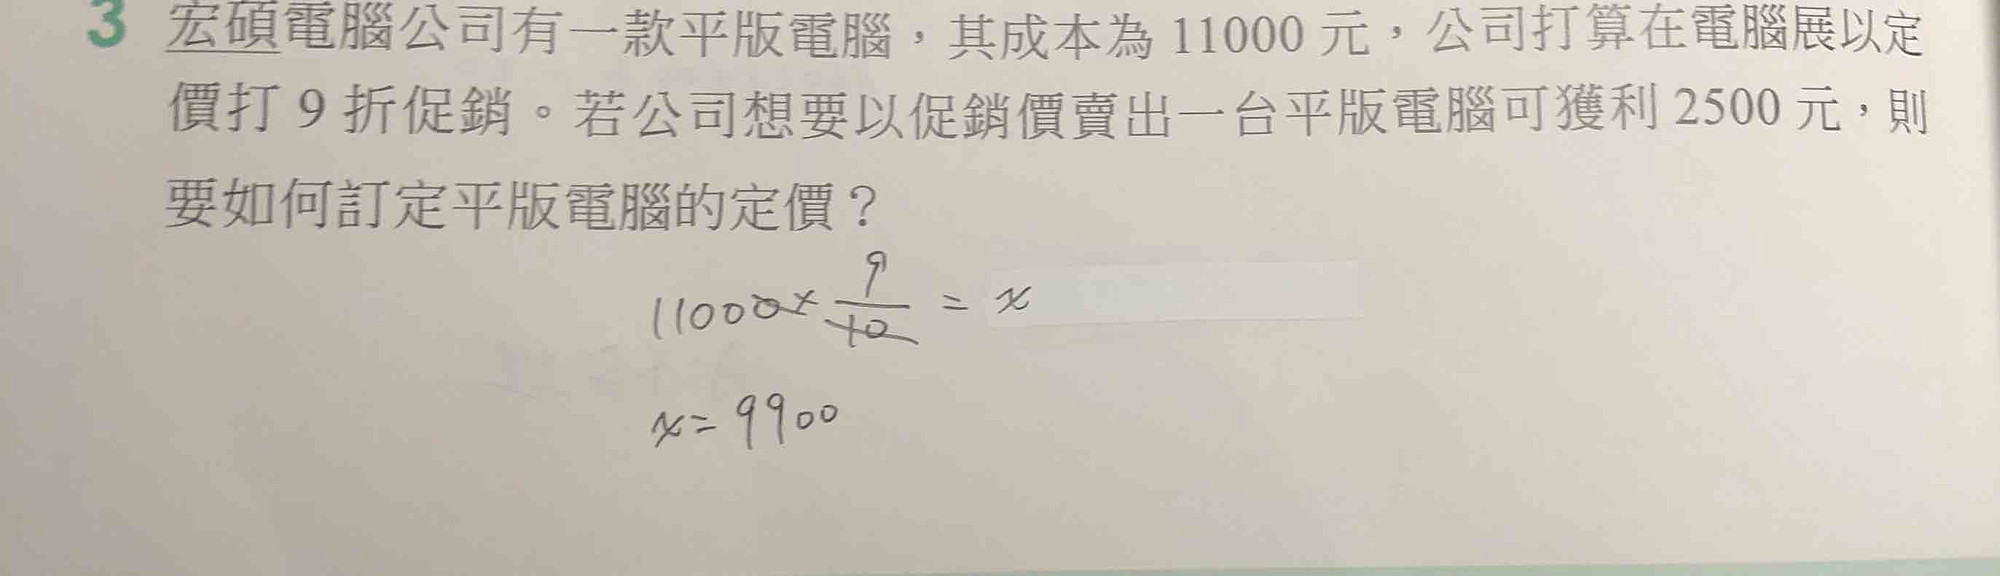 3 宏碩電腦公司有一款平版電腦，其成本為 11000 元，公司打算在電腦展以定
價打 9 折促銷。若公司想要以促銷價賣出一台平版電腦可獲利 2500 元，則
要如何訂定平版電腦的定價？
11000×9/10 = x
x=9900